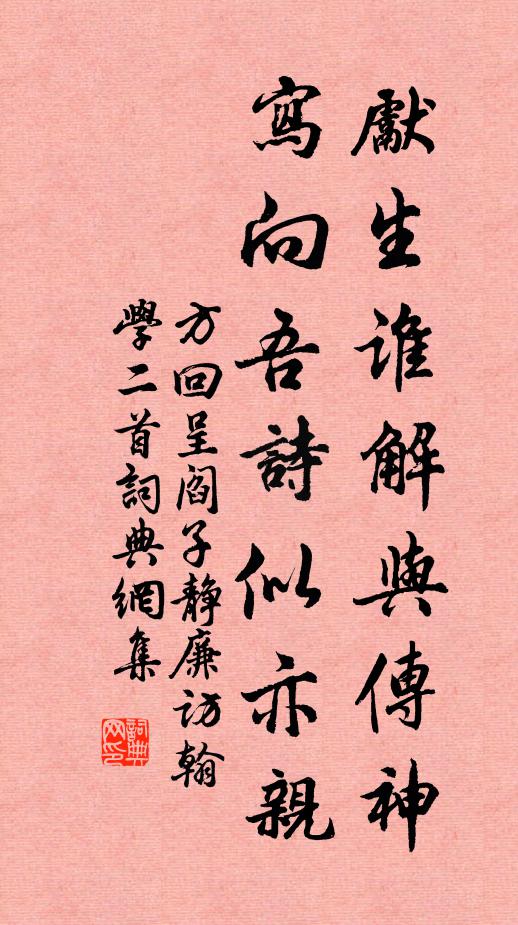 獻生誰解與傳神
寫向吾詩似亦親
方回呈閻子靜廉訪翰
學二首詞典網集
詞典
网印